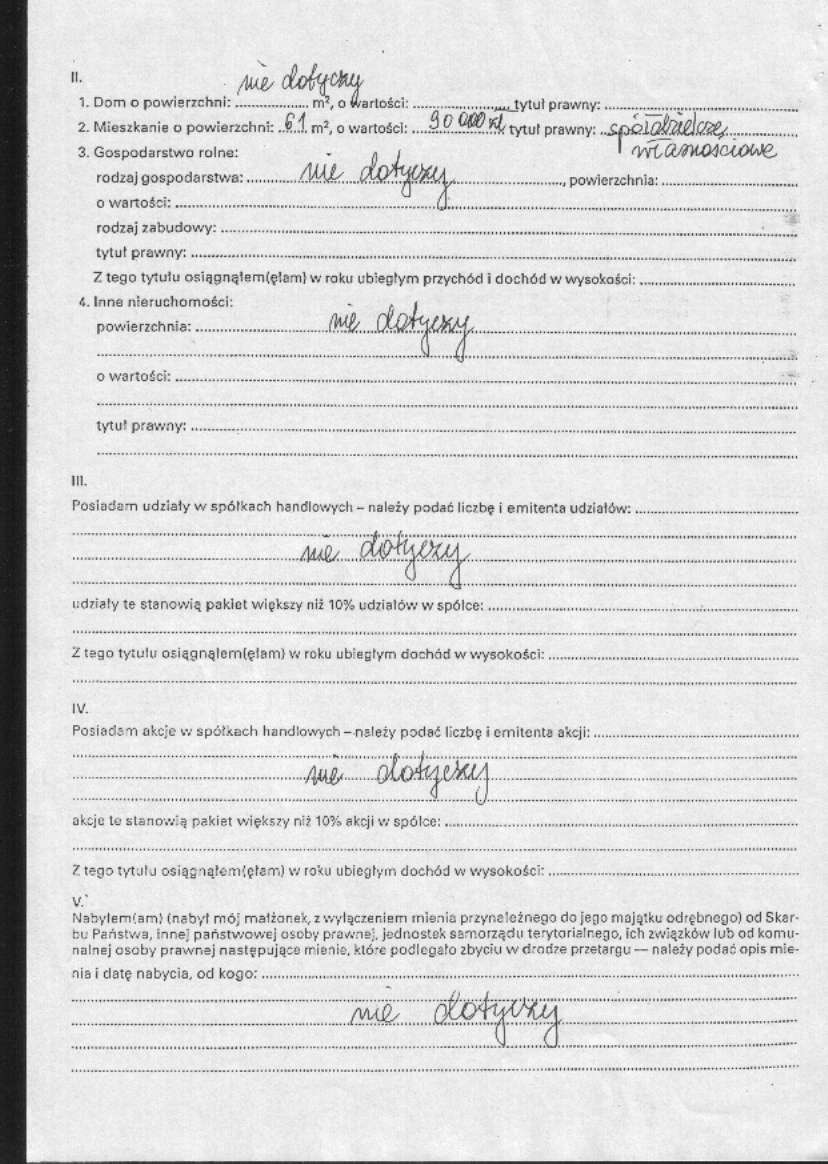 II.
nie dotyczy
1. Dom o powierzchni: .................. m², o wartości: ........................ tytuł prawny: ................................................
2. Mieszkanie o powierzchni: 61 m², o wartości: 90 000 zł tytuł prawny: spółdzielcze
własnościowe
3. Gospodarstwo rolne:
rodzaj gospodarstwa: nie dotyczy, powierzchnia: ..................................
o wartości: ................................................
rodzaj zabudowy: ................................................
tytuł prawny: ................................................
Z tego tytułu osiągnąłem(ęłam) w roku ubiegłym przychód i dochód w wysokości: ........................................
4. Inne nieruchomości:
powierzchnia: nie dotyczy
................................................
o wartości: ................................................
................................................
tytuł prawny: ................................................
................................................
III.
Posiadam udziały w spółkach handlowych – należy podać liczbę i emitenta udziałów: ........................................
................................................
nie dotyczy
................................................
udziały te stanowią pakiet większy niż 10% udziałów w spółce: ................................................
................................................
Z tego tytułu osiągnąłem(ęłam) w roku ubiegłym dochód w wysokości: ................................................
................................................
IV.
Posiadam akcje w spółkach handlowych – należy podać liczbę i emitenta akcji: ................................................
................................................
nie dotyczy
................................................
akcje te stanowią pakiet większy niż 10% akcji w spółce: ................................................
................................................
Z tego tytułu osiągnąłem(ęłam) w roku ubiegłym dochód w wysokości: ................................................
V.
Nabyłem(am) (nabył mój małżonek, z wyłączeniem mienia przynależnego do jego majątku odrębnego) od Skar-
bu Państwa, innej państwowej osoby prawnej, jednostek samorządu terytorialnego, ich związków lub od komu-
nalnej osoby prawnej następujące mienie, które podlegało zbyciu w drodze przetargu — należy podać opis mie-
nia i datę nabycia, od kogo: ................................................
................................................
nie dotyczy
................................................
................................................